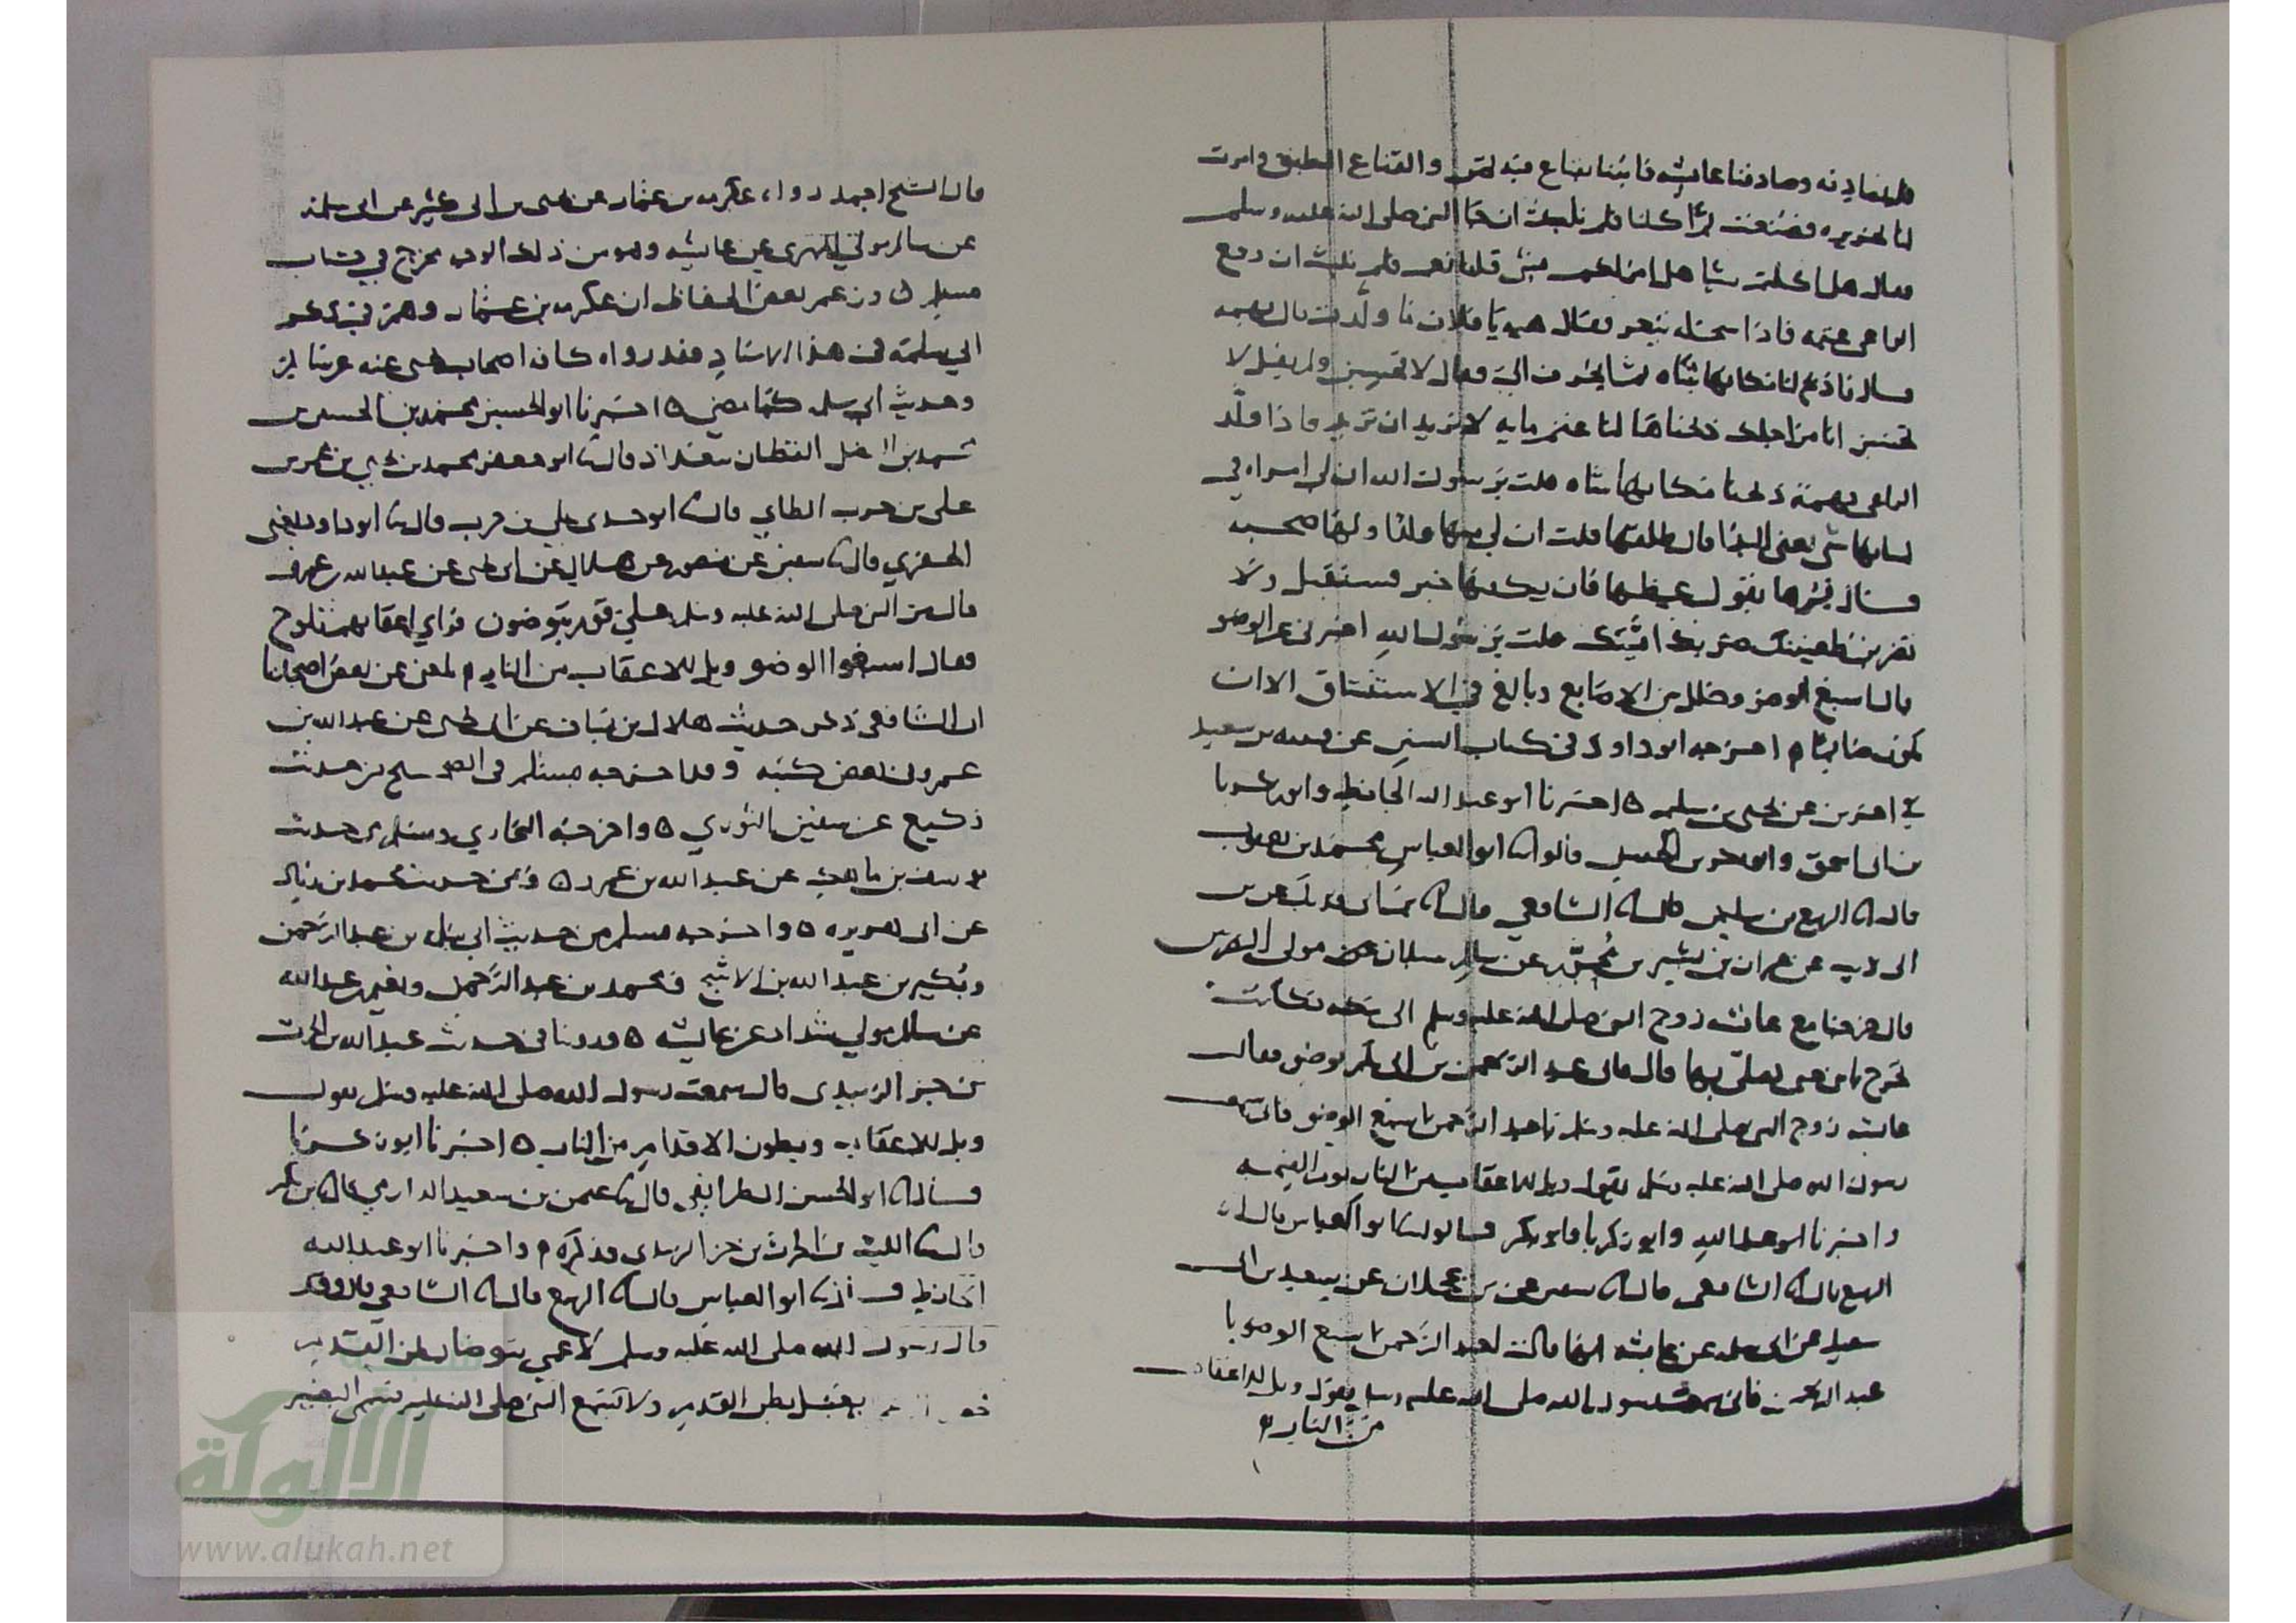 فلم نصادفه وصادفنا عائشه فاتينا بقناع فيه تمر والقناع الطبق وامرت
لنا بخزيره فصنعت ثم اكلنا فلم نلبث ان جا النبي صلى الله عليه وسلم
فقال هل اكلتم شيا هل امر لكم بشي قلنا نعم فلم نلبث ان دفع
الراعي غنمه فاذا سخله تيعر فقال هيه يا فلان ما ولدت قال بهمه
قال فاذبح لنا مكانها شاه ثم انحرف الي وقال لا تحسبن ولم يقل لا
تحسبن انا من اجلك ذبحناها لنا غنم مايه لا نريد ان تزيد فاذا ولد
الراعي بهمة ذبحنا مكانها شاه قلت يرسول الله ان لي امراه في
لسانها شي يعني البذا قال طلقها قلت ان لي منها ولدا ولها صحبه
قال فمرها يقول عظها فان يك فيها خير فستقبل ولا
تضربن ظعينتك ضربك اميتك قلت يرسول الله اخبرني عن الوضو
قال اسبغ الوضو وخلل بين الاصابع وبالغ في الاستنشاق الا ان
تكون صايما اخرجه ابو داود في كتاب السنن عن قتيبه بن سعيد
في اخرين عن يحيى بن سليم ه اخبرنا ابو عبد الله الحافظ وابو زكريا
بن ابي اسحق وابو بكر بن الحسن قالوا ابو العباس محمد بن يعقوب
قال الربيع بن سليمن قال الشافعي قال
الى ذيب عن عمران بن بشير بن محرر عن سالم سبلان مولى النصريين
قال خرجنا مع عائشه زوج النبي صلى الله عليه وسلم الى مكه فكانت
تخرج بابي حتى يصلي بها قال فاتى عبد الرحمن بن ابي بكر بوضو فقالت
عايشه زوج النبي صلى الله عليه وسلم يا عبد الرحمن اسبغ الوضو فاني سمعت
رسول الله صلى الله عليه وسلم يقول ويل للاعقاب من النار يوم القيمه
واخبرنا ابو عبد الله وابو زكريا وابو بكر قالوا ابو العباس قال
الربيع قال الشافعي قال سفين عن بن عجلان عن سعيد بن ابي
سعيد عن ابي سلمه عن عايشه انها قالت لعبد الرحمن اسبغ الوضو يا
عبد الرحمن فاني سمعت رسول الله صلى الله عليه وسلم يقول ويل للاعقاب
من النار
قال الشيخ احمد رواه عكرمه بن عمار عن يحيى بن ابي كثير عن ابي سلمه
عن سالم مولى المهري عن عايشه وهو من ذلك الوجه مخرج في كتاب
مسلم وزعم بعض الحفاظ ان عكرمه بن عمار وهم في ذكر
ابي سلمة في هذا الاسناد فقد رواه كافه اصحاب يحيى عنه عن سالم
وحديث ابي سلمه كما مضى ه اخبرنا ابو الحسين محمد بن الحسين بن
محمد بن الفضل القطان ببغداذ قال ابو جعفر محمد بن يحيى بن عمر بن
علي بن حرب الطاي قال ابو جدي علي بن حرب قال ابو داود يعني
الحفري قال سفين عن منصور عن هلال عن ابي يحيى عن عبد الله بن عمرو
قال مر النبي صلى الله عليه وسلم على قوم يتوضون فراي اعقابهم تلوح
فقال اسبغوا الوضو ويل للاعقاب من النار بلغني عن بعض اصحابنا
ان الشافعي ذكر حديث هلال بن يساف عن ابي يحيى عن عبد الله بن
عمرو في بعض كتبه وقد اخرجه مسلم في الصحيح من حديث
وكيع عن سفين الثوري ه واخرجه البخاري ومسلم من حديث
يوسف بن ماهك عن عبد الله بن عمرو ه ومن حديث محمد بن زياد
عن ابي هريره ه واخرجه مسلم من حديث ابي سلمه بن عبد الرحمن
وبكير بن عبد الله بن الاشج ومحمد بن عبد الرحمن ونعيم بن عبد الله
عن سالم مولى شداد عن عايشه ه وروينا في حديث عبد الله بن الحرث
بن جز الزبيدي قال سمعت رسول الله صلى الله عليه وسلم يقول
ويل للاعقاب وبطون الاقدام من النار ه اخبرنا ابو زكريا
قال ابو الحسن الطرايفي قال عثمن بن سعيد الدارمي قال بن بكير
قال الليث بن الحرث بن جز الزبيدي فذكره واخبرنا ابو عبد الله
الحافظ ابو العباس قال الربيع قال الشافعي
قال رسول الله صلى الله عليه وسلم لاعمى يتوضا بطن القدم
يغسل بطن القدم ولا يسمع النبي صلى الله عليه فسمي البصير
الألوكة
www.alukah.net